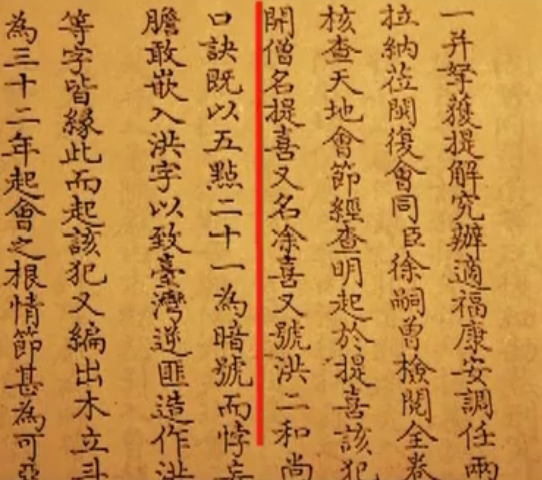 一并拏獲提解究辦適福康安調任兩
拉納莅閩復會同臣徐嗣曾檢閱全卷
核查天地會節經查明起於提喜該犯
開僧名提喜又名凃喜又號洪二和尚
口訣既以五點二十一為暗號而悖妄
膽敢嵌入洪字以致臺灣逆匪造作洪
等字皆緣此而起該犯又編出木立斗
為三十二年起會之根情節甚為可惡